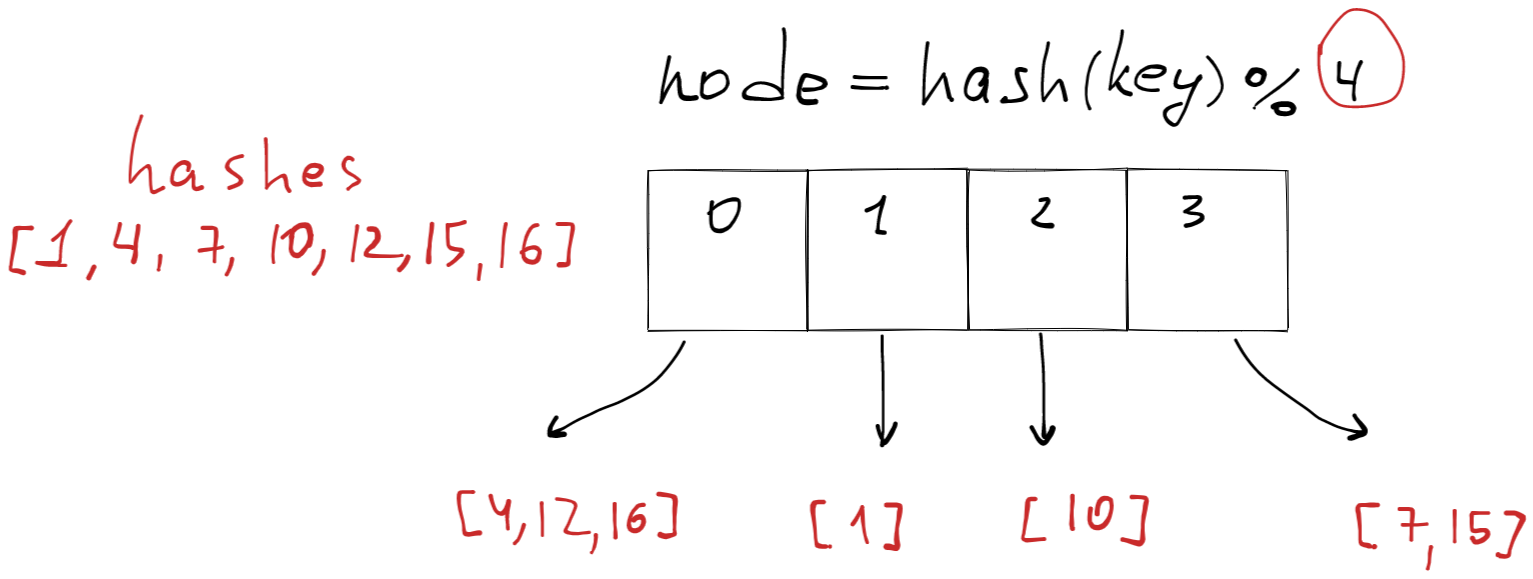 node = hash(key) % 4
hashes
[1, 4, 7, 10, 12, 15, 16]
0 1 2 3
[4, 12, 16] [1] [10] [7, 15]